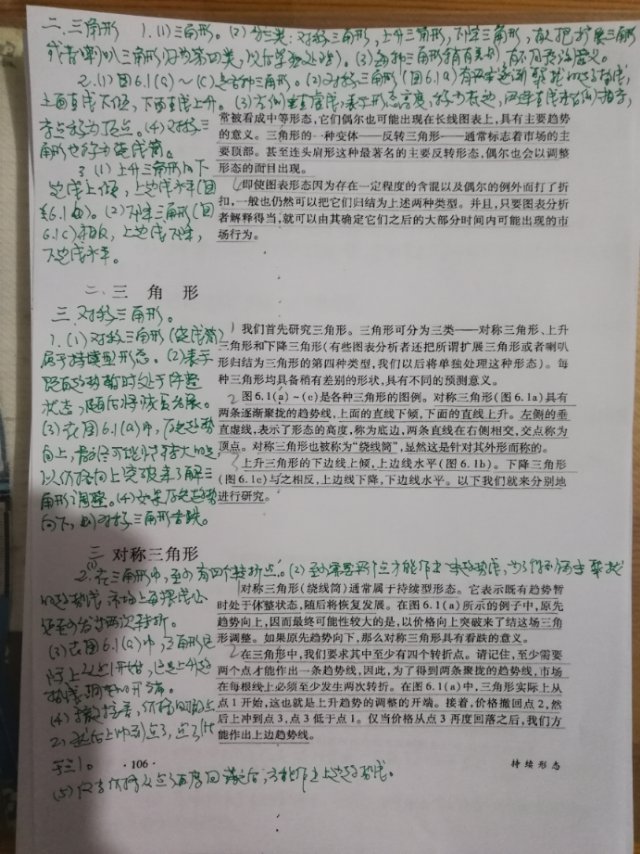 二.三角形 1.(1)三角形。(2)分三类:对称三角形,上升三角形,下降三角形,有人把扩展三角形
或者喇叭三角形归为第四类,以后单独处理)。(3)每种三角形稍有差别,有不同预测意义。
2.(1)图6.1(a)~(c)是各种三角形。(2)对称三角形(图6.1a)有两条逐渐聚拢的趋势线,
上面直线下倾,下面直线上升。(3)左侧垂直虚线,表示形态高度,称为底边,两条直线右侧相交,
交点称为顶点。(4)对称三
角形也称为绕线筒。
3.(1)上升三角形的下
边线上倾,上边线水平(图
6.1b)。(2)下降三角形(图
6.1c)相反,上边线下降,
下边水平。
常被看成中等形态,它们偶尔也可能出现在长线图表上,具有主要趋势
的意义。三角形的一种变体——反转三角形——通常标志着市场的主
要顶部。甚至连头肩形这种最著名的主要反转形态,偶尔也会以调整
形态的面目出现。
即使图表形态因为存在一定程度的含混以及偶尔的例外而打了折
扣,一般也仍然可以把它们归结为上述两种类型。并且,只要图表分析
者解释得当,就可以由其确定它们之后的大部分时间内可能出现的市
场行为。
二. 三 角 形
三.对称三角形。
1.(1)对称三角形(绕线筒)
属于持续型形态。(2)表示
既有趋势暂时处于休整
状态,随后将恢复发展。
(3)在图6.1(a)中,原先趋势
向上,最终可能性较大的是
以价格向上突破来了解三
角形调整。(4)如果原先趋势
向下,则对称三角形看跌。
1 我们首先研究三角形。三角形可分为三类——对称三角形、上升
三角形和下降三角形(有些图表分析者还把所谓扩展三角形或者喇叭
形归结为三角形的第四种类型,我们以后将单独处理这种形态)。每
种三角形均具备稍有差别的形状,具有不同的预测意义。
2 图6.1(a)~(c)是各种三角形的图例。对称三角形(图6.1a)具有
两条逐渐聚拢的趋势线,上面的直线下倾,下面的直线上升。左侧的垂
直虚线,表示了形态的高度,称为底边,两条直线在右侧相交,交点称为
顶点。对称三角形也被称为“绕线筒”,显然这是针对其外形而称的。
上升三角形的下边线上倾,上边线水平(图6.1b)。下降三角形
(图6.1c)与之相反,上边线下降,下边线水平。以下我们就来分别地
进行研究。
三 对称三角形
2.(1)在三角形中,至少有四个转折点。(2)至少需要两个点才能作出一条趋势线,为了得到两条聚拢
的趋势线,市场上每根线必
须至少发生两次转折。
(3)在图6.1(a)中,三角形实
际上从点1开始,这是上升趋
势线调整的开端。
(4)接着,价格回撤点
2,然后上冲到点3,点3低
于点1。
对称三角形(绕线筒)通常属于持续型形态。它表示既有趋势暂
时处于休整状态,随后将恢复发展。在图6.1(a)所示的例子中,原先
趋势向上,因而最终可能性较大的是,以价格向上突破来了结这场三角
形调整。如果原先趋势向下,那么对称三角形具有看跌的意义。
2 在三角形中,我们要求其中至少有四个转折点。请记住,至少需要
两个点才能作出一条趋势线,因此,为了得到两条聚拢的趋势线,市场
在每根线上必须至少发生两次转折。在图6.1(a)中,三角形实际上从
点1开始,这也就是上升趋势的调整的开端。接着,价格撤回点2,然
后上冲到点3,点3低于点1。仅当价格从点3再度回落之后,我们方
能作出上边趋势线。
· 106 · 持续形态
(5)仅当价格从点3再度回落之后,才能作出上边趋势线。